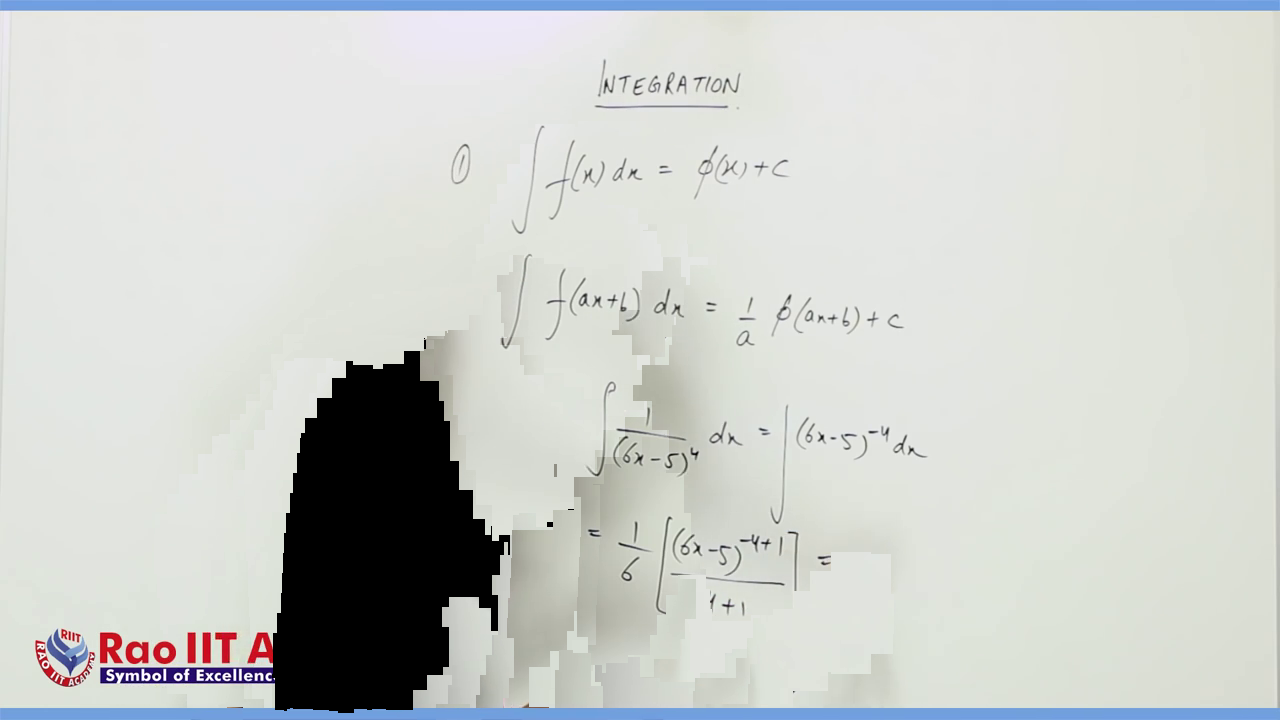 INTEGRATION
① ∫ f(x) dx = ϕ(x) + c
∫ f(ax+b) dx = 1/a ϕ(ax+b) + c
∫ 1/(6x-5)⁴ dx = ∫ (6x-5)⁻⁴ dx
= 1/6 [(6x-5)⁻⁴⁺¹ / 4+1] =
RIIT
RAO IIT ACADEMY
Rao IIT A
Symbol of Excellenc